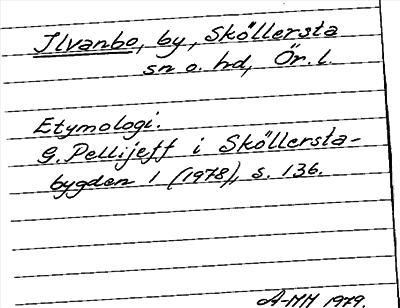 Ilvanbo, by, Sköllersta
sn o. hd, Ör. l.
Etymologi.
G. Pellijeff i Sköllersta-
bygden 1 (1978), s. 136.
A-MM 1979.